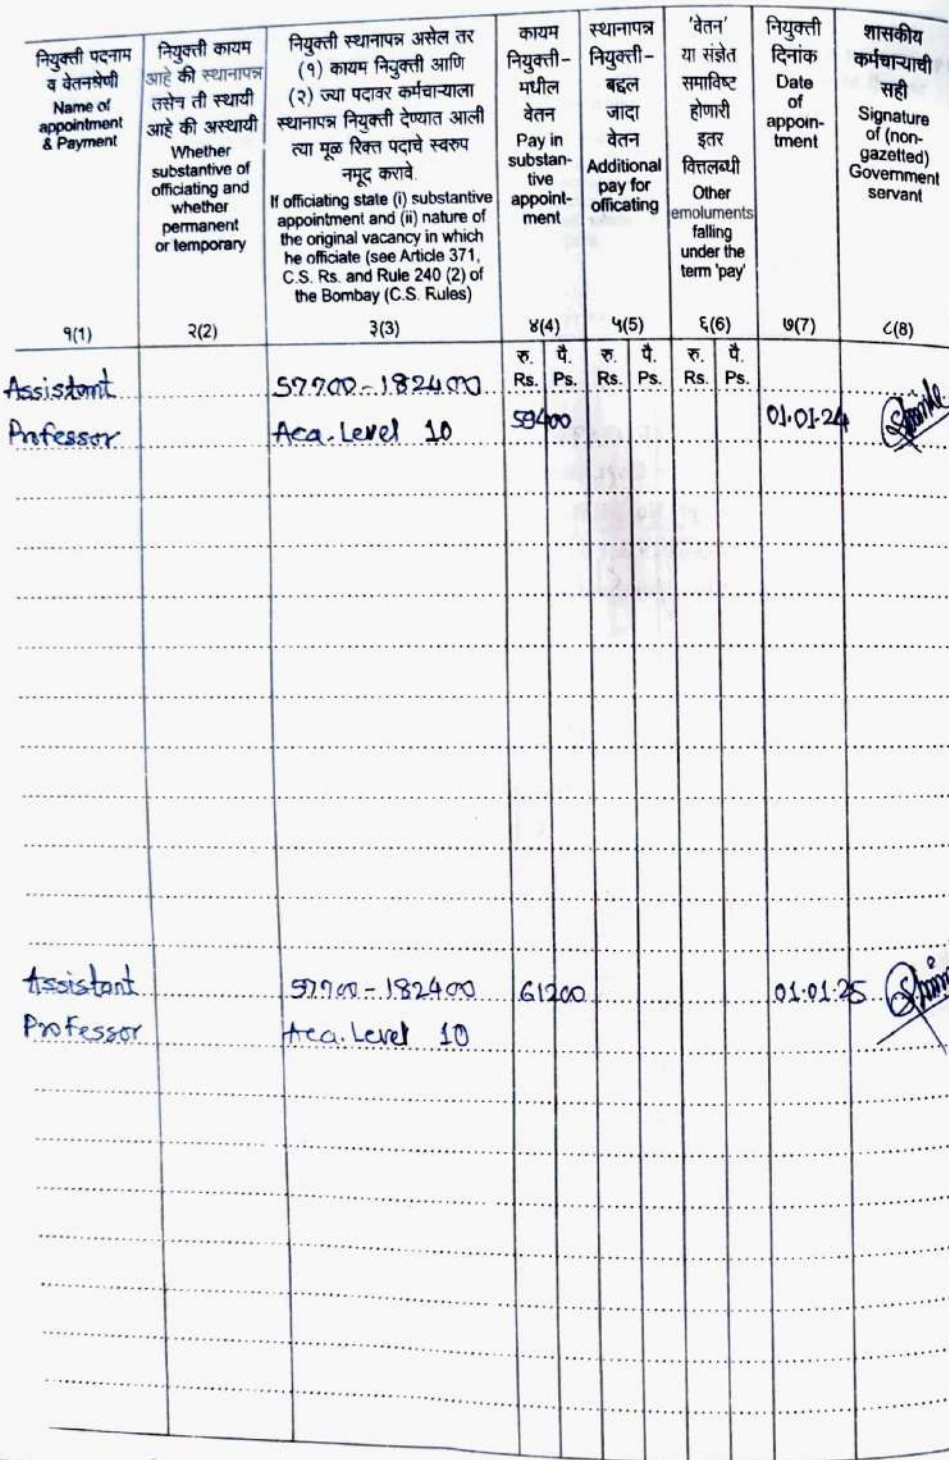 नियुक्ती पदनाम
व वेतनश्रेणी
Name of
appointment
& Payment
१(1)
नियुक्ती कायम
आहे की स्थानापन्न
तसेच ती स्थायी
आहे की अस्थायी
Whether
substantive of
officiating and
whether
permanent
or temporary
२(2)
नियुक्ती स्थानापन्न असेल तर
(१) कायम नियुक्ती आणि
(२) ज्या पदावर कर्मचाऱ्याला
स्थानापन्न नियुक्ती देण्यात आली
त्या मूळ रिक्त पदाचे स्वरुप
नमूद करावे.
If officiating state (i) substantive
appointment and (ii) nature of
the original vacancy in which
he officiate (see Article 371,
C.S. Rs. and Rule 240 (2) of
the Bombay (C.S. Rules)
३(3)
कायम
नियुक्ती-
मधील
वेतन
Pay in
substan-
tive
appoint-
ment
४(4)
स्थानापन्न
नियुक्ती-
बद्दल
जादा
वेतन
Additional
pay for
officating
५(5)
'वेतन'
या संज्ञेत
समाविष्ट
होणारी
इतर
वित्तलब्धी
Other
emoluments
falling
under the
term 'pay'
६(6)
नियुक्ती
दिनांक
Date
of
appoin-
tment
७(7)
शासकीय
कर्मचाऱ्याची
सही
Signature
of (non-
gazetted)
Government
servant
८(8)
रु. पै. रु. पै. रु. पै.
Rs. Ps. Rs. Ps. Rs. Ps.
Assistant 57700-182400
Professor Aca. Level 10 59400 01.01.24
Assistant 57700-182400 61200 01.01.25
Professor Aca. Level 10